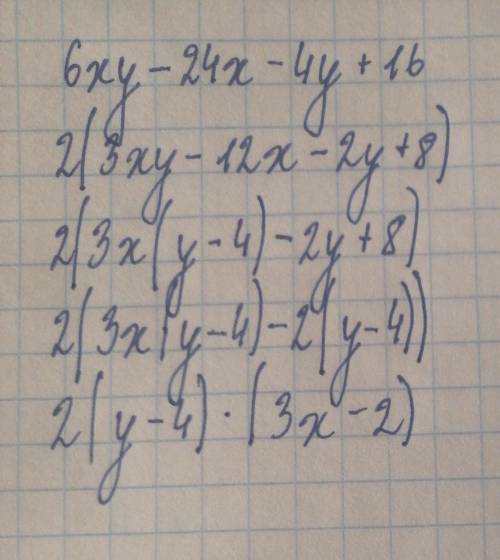 6xy - 24x - 4y + 16
2(3xy - 12x - 2y + 8)
2(3x(y - 4) - 2y + 8)
2(3x(y - 4) - 2(y - 4))
2(y - 4) · (3x - 2)